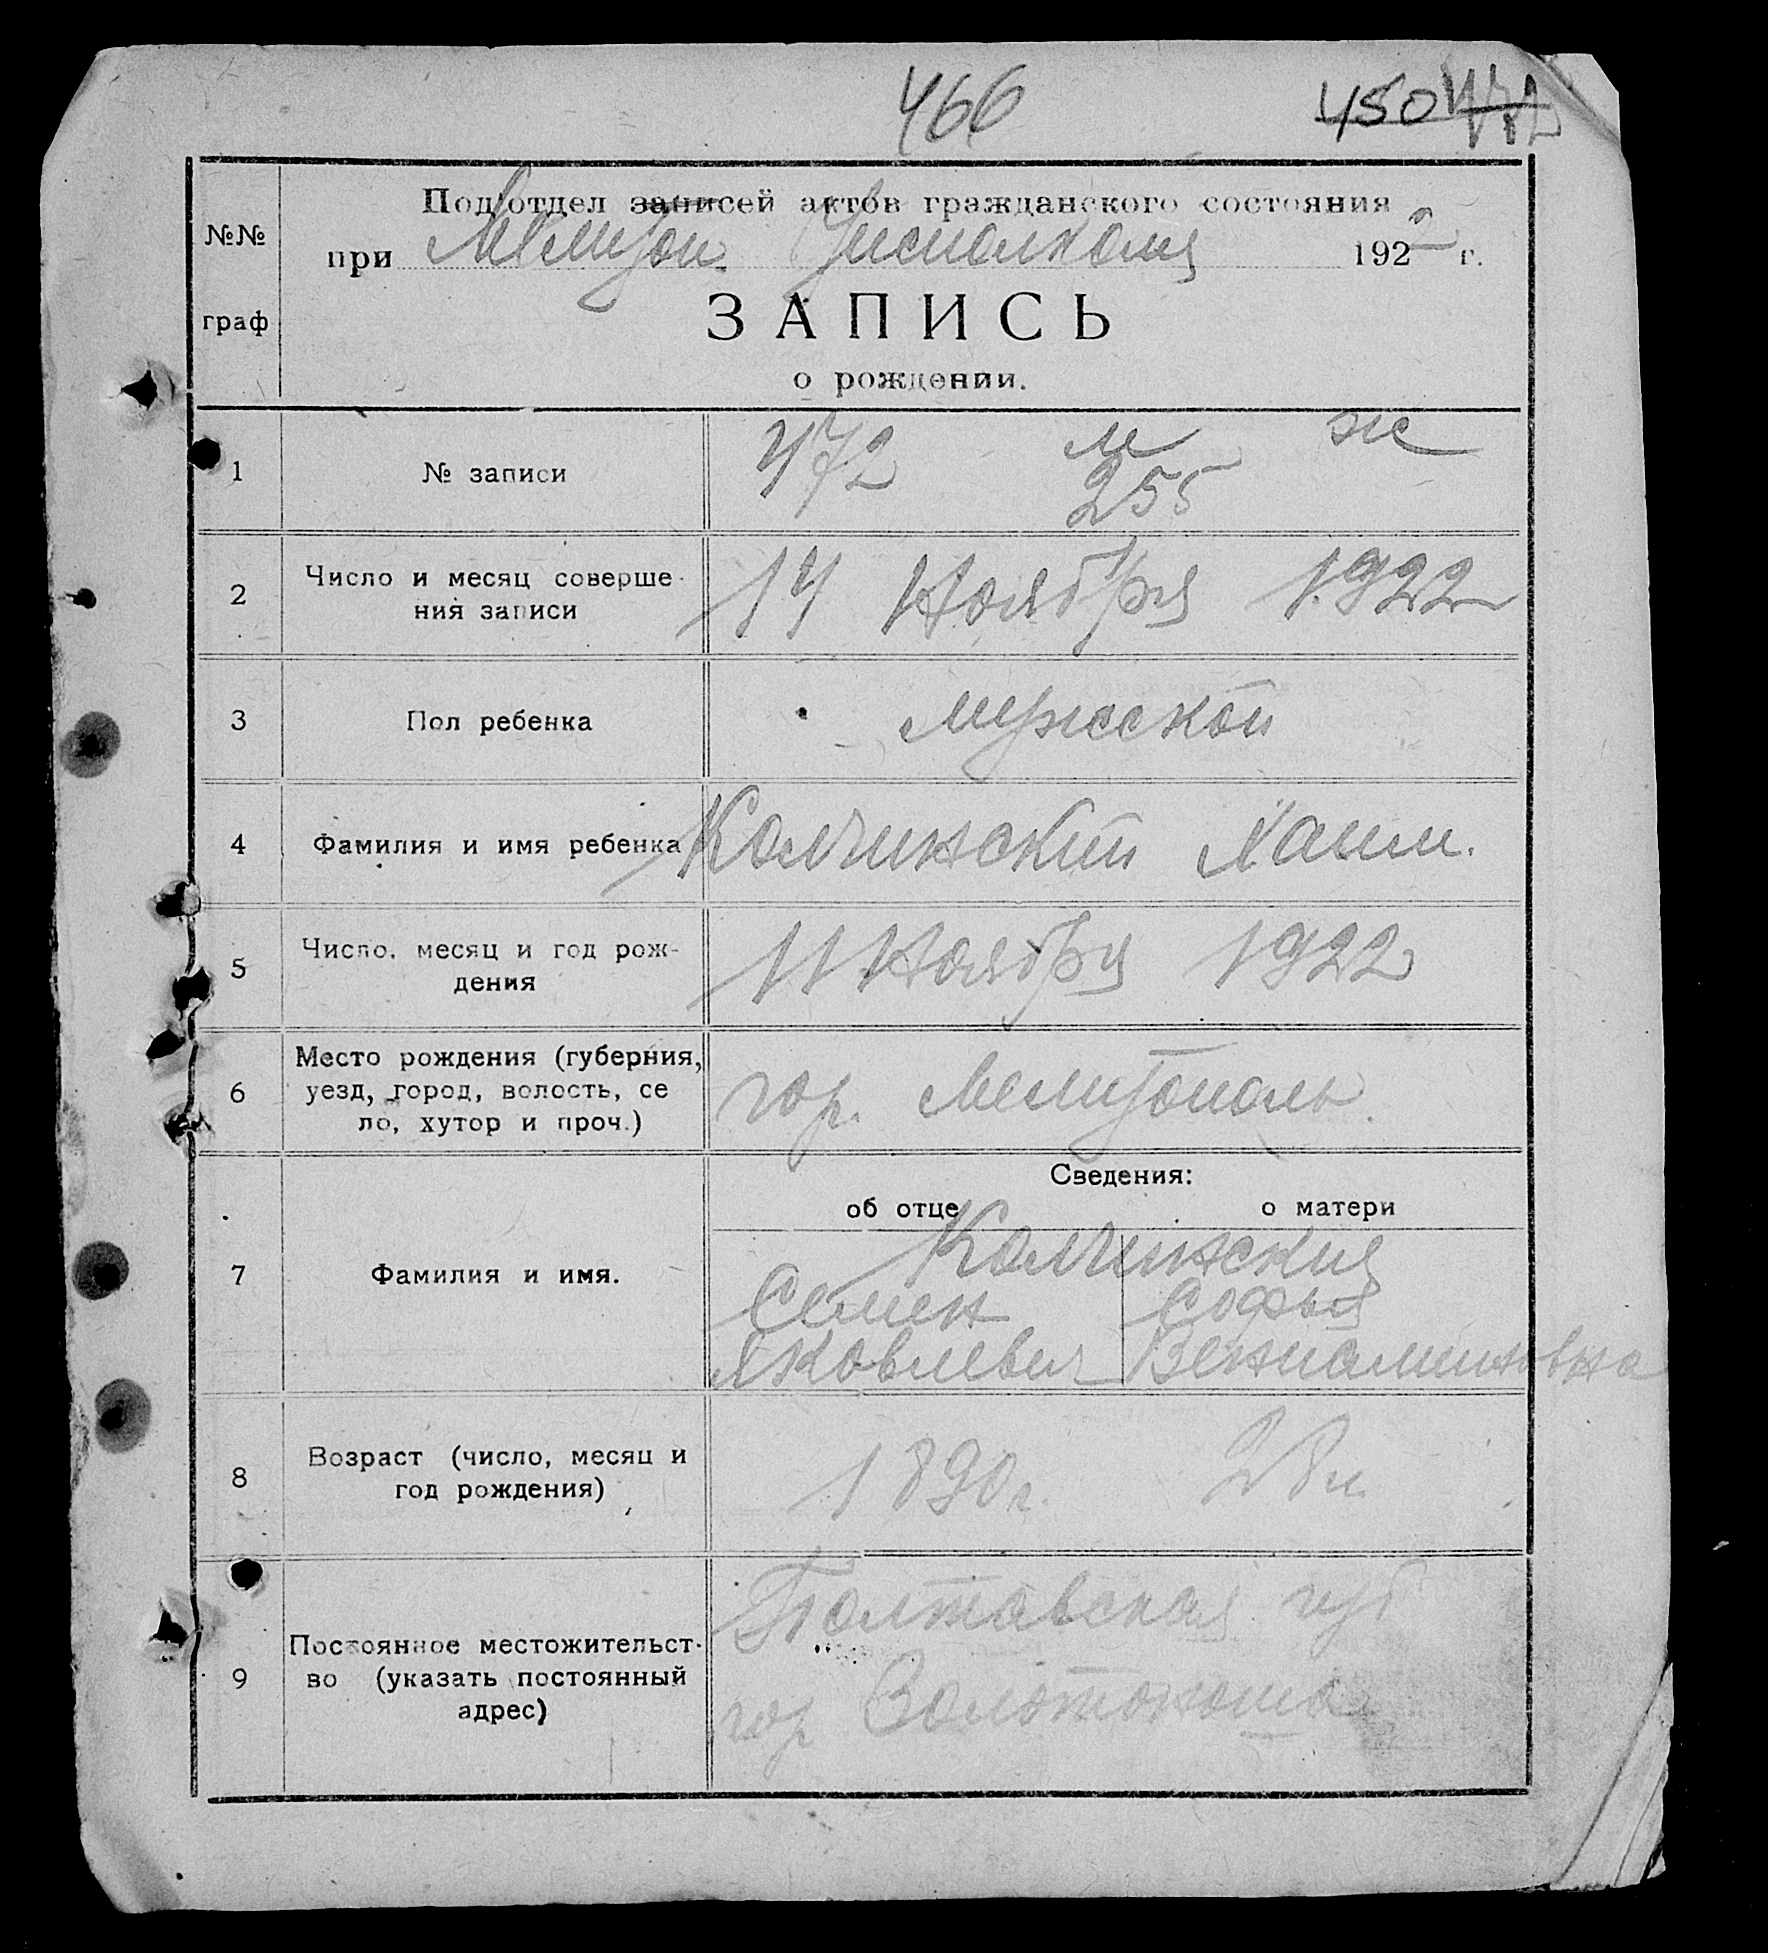 466 450
№№ граф
Подотдел записей актов гражданского состояния
при Мелитоп. Исполкома 1922 г.
ЗАПИСЬ
о рождении.
1 № записи 472 м 255 ж
2 Число и месяц соверше-
ния записи 14 Ноября 1922
3 Пол ребенка мужской
4 Фамилия и имя ребенка Колчинский Хаим.
5 Число, месяц и год рож-
дения 11 Ноября 1922
6 Место рождения (губерния,
уезд, город, волость, се
ло, хутор и проч.) гор. Мелитополь.
Сведения:
об отце о матери
7 Фамилия и имя. Колчинския
Семен Софья
Яковлевич Вениаминовна
8 Возраст (число, месяц и
год рождения) 1890 г. 28 л.
9 Постоянное местожительст-
во (указать постоянный
адрес) Полтавская губ
гор Золотоноша